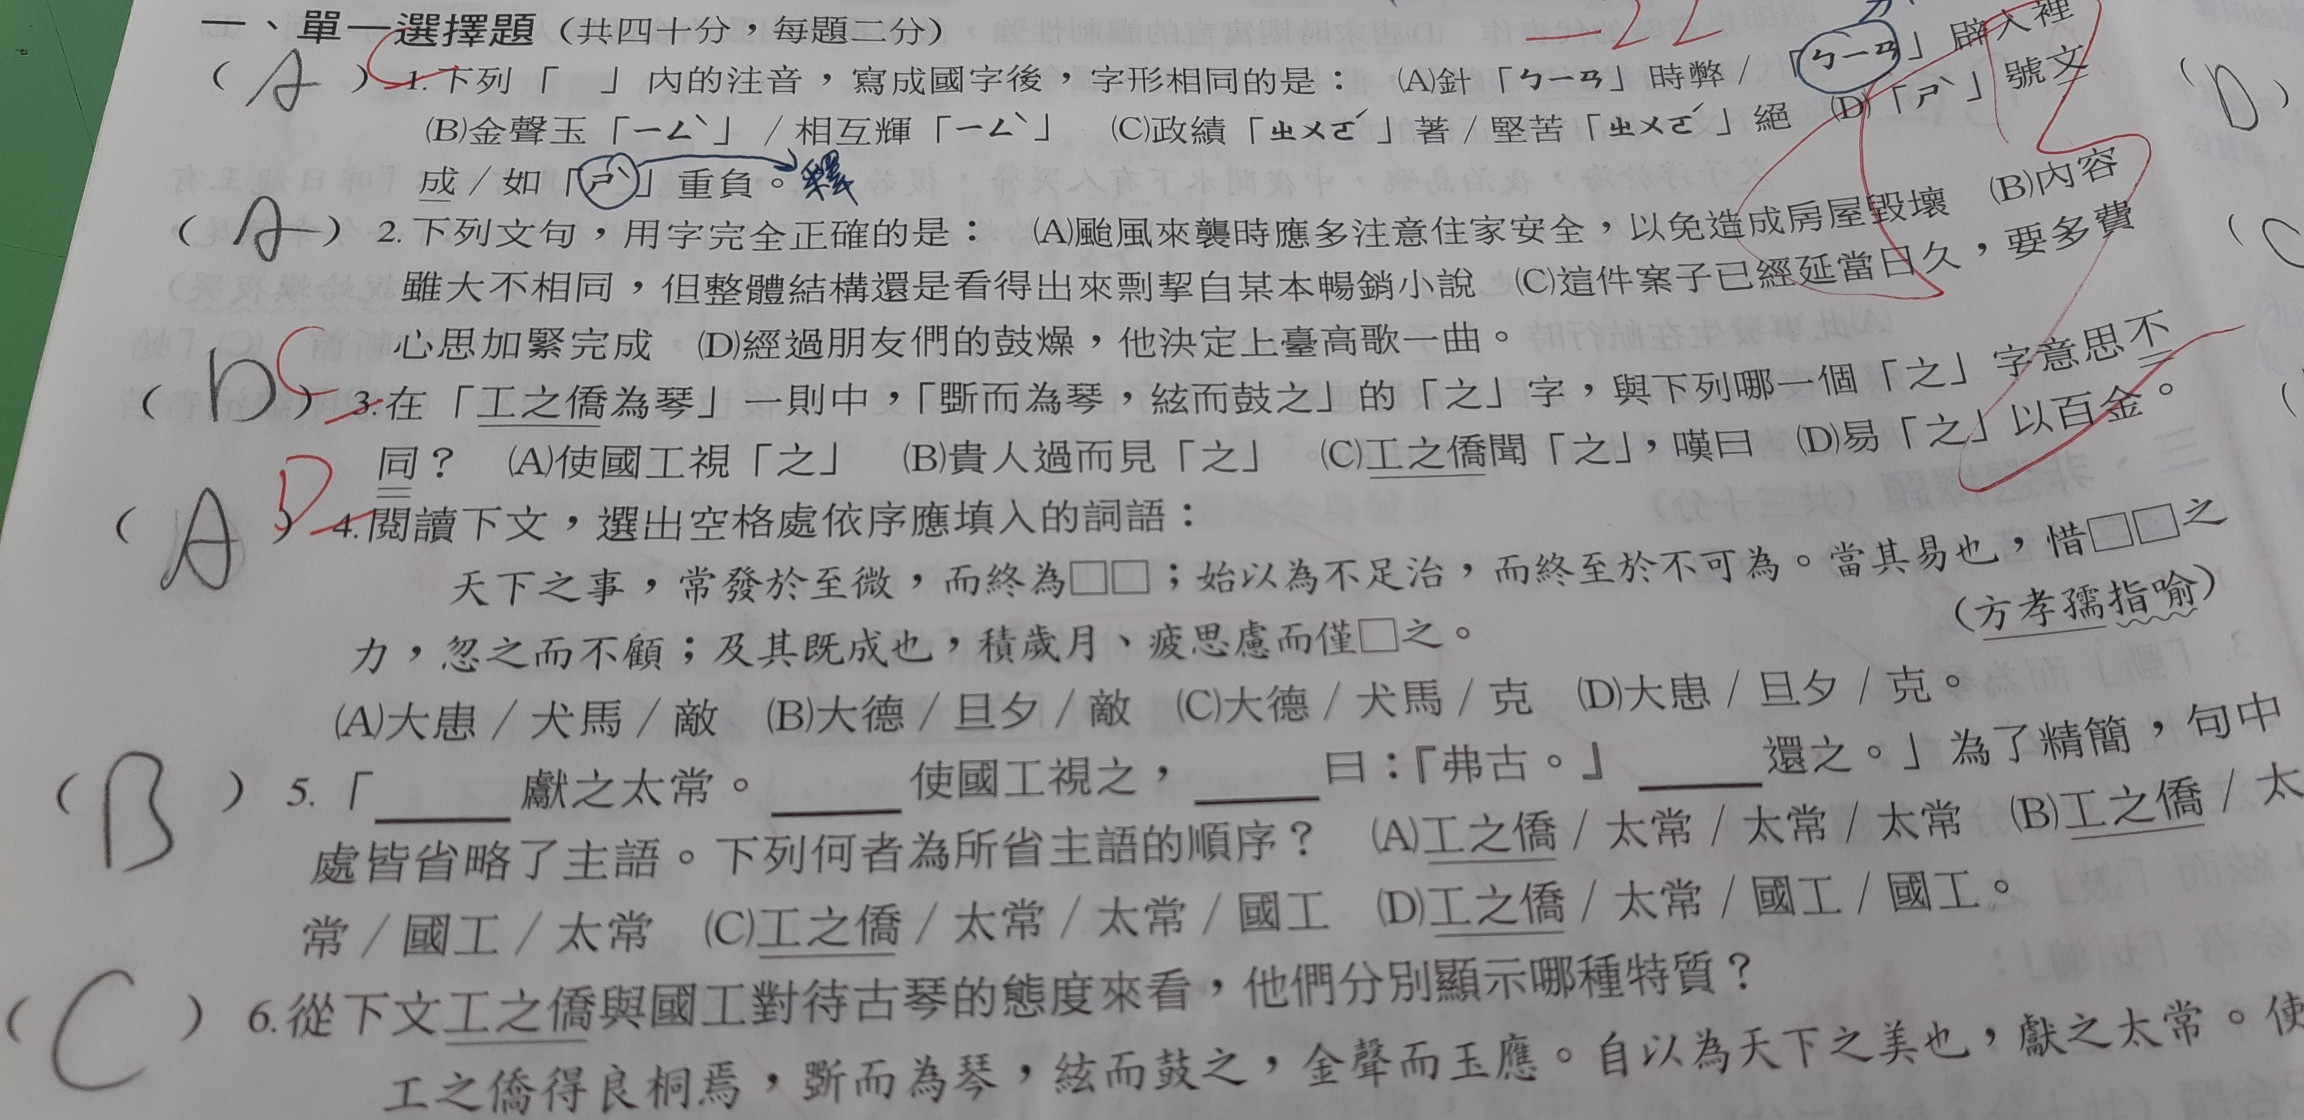 一、單一選擇題（共四十分，每題二分）
-22
12
（ A ） C 1.下列「　」內的注音，寫成國字後，字形相同的是： (A)針「ㄅㄧㄢ」時弊/「ㄅㄧㄢ」辟入裡
(B)金聲玉「ㄧㄥˋ」/相互輝「ㄧㄥˋ」 (C)政績「ㄓㄨㄛˊ」著/堅苦「ㄓㄨㄛˊ」絕 (D)「ㄕˋ」號文
成/如「ㄕˋ」重負。 釋
（ A ） 2.下列文句，用字完全正確的是： (A)颱風來襲時應多注意住家安全，以免造成房屋毀壞 (B)內容
雖大不相同，但整體結構還是看得出來剽挈自某本暢銷小說 (C)這件案子已經延當日久，要多費
心思加緊完成 (D)經過朋友們的鼓燥，他決定上臺高歌一曲。
（ D ） C 3.在「工之僑為琴」一則中，「斲而為琴，絃而鼓之」的「之」字，與下列哪一個「之」字意思不
同？ (A)使國工視「之」 (B)貴人過而見「之」 (C)工之僑聞「之」，嘆曰 (D)易「之」以百金。
（ A ） D 4.閱讀下文，選出空格處依序應填入的詞語：
天下之事，常發於至微，而終為□□；始以為不足治，而終至於不可為。當其易也，惜□□之
力，忽之而不顧；及其既成也，積歲月、疲思慮而僅□之。
（方孝孺指喻）
(A)大患/犬馬/敵 (B)大德/旦夕/敵 (C)大德/犬馬/克 (D)大患/旦夕/克。
（ B ） 5.「____獻之太常。____使國工視之，____曰：『弗古。』____還之。」為了精簡，句中
處皆省略了主語。下列何者為所省主語的順序？ (A)工之僑/太常/太常/太常 (B)工之僑/太
常/國工/太常 (C)工之僑/太常/太常/國工 (D)工之僑/太常/國工/國工。
（ C ） 6.從下文工之僑與國工對待古琴的態度來看，他們分別顯示哪種特質？
工之僑得良桐焉，斲而為琴，絃而鼓之，金聲而玉應。自以為天下之美也，獻之太常。使
（D）
（C